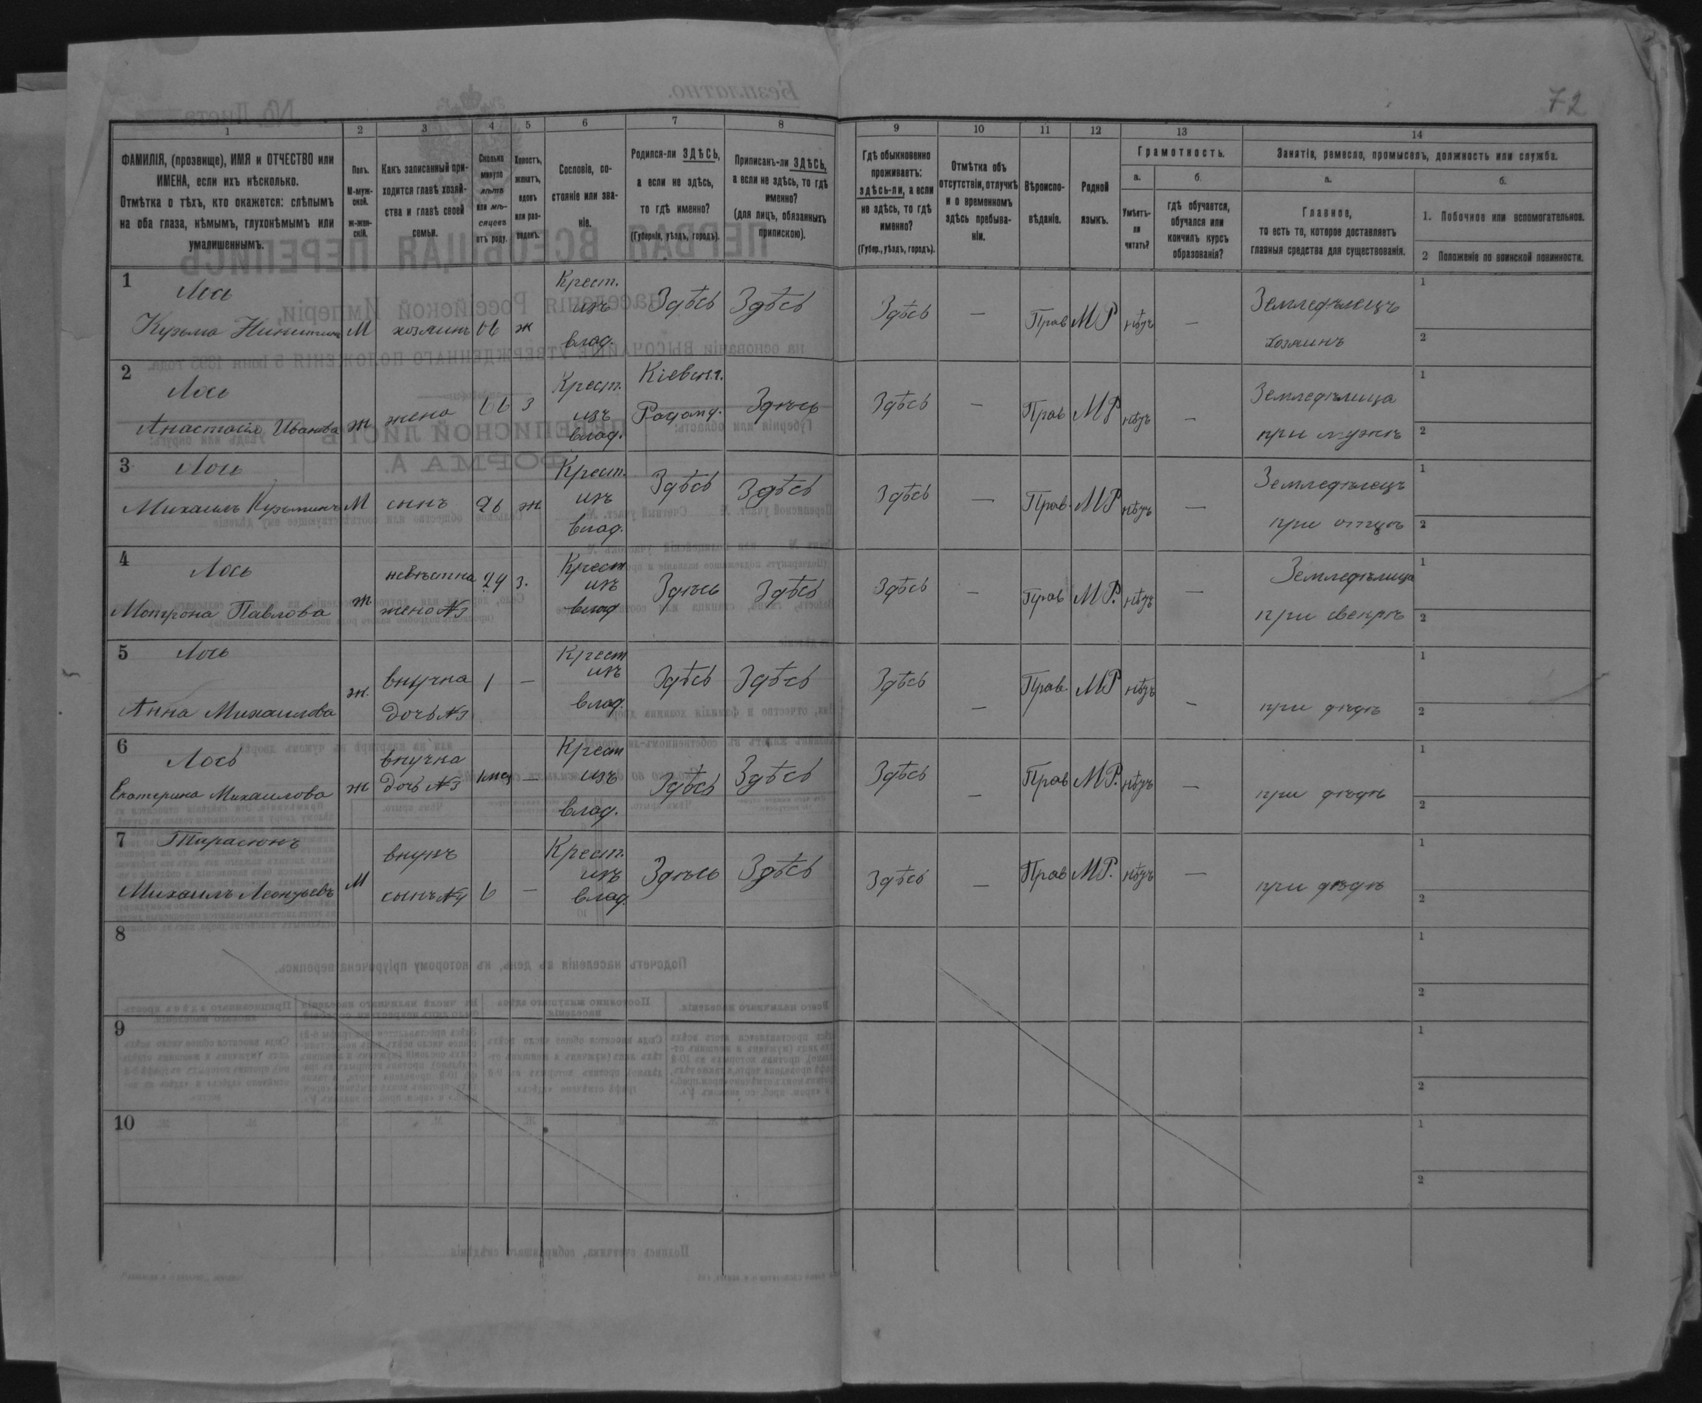 72
1 2 3 4 5 6 7 8 9 10 11 12 13 14
ФАМИЛІЯ, (прозвище), ИМЯ и ОТЧЕСТВО или
ИМЕНА, если ихъ нѣсколько.
Отмѣтка о тѣхъ, кто окажется: слѣпымъ
на оба глаза, нѣмымъ, глухонѣмымъ или
умалишеннымъ.
Полъ.
М-муж-
ской.
ж-жен-
скій.
Какъ записанный при-
ходится главѣ хозяй-
ства и главѣ своей
семьи.
Сколько
минуло
лѣтъ
или мѣ-
сяцевъ
отъ роду.
Холостъ,
женатъ,
вдовъ
или раз-
веденъ.
Сословіе, со-
стояніе или зва-
ніе.
Родился-ли ЗДѢСЬ,
а если не здѣсь,
то гдѣ именно?
(Губернія, уѣздъ, городъ).
Приписанъ-ли ЗДѢСЬ,
а если не здѣсь, то гдѣ
именно?
(для лицъ, обязанныхъ
припискою).
Гдѣ обыкновенно
проживаетъ:
здѣсь-ли, а если
не здѣсь, то гдѣ
именно?
(Губер., уѣздъ, городъ).
Отмѣтка объ
отсутствіи, отлучкѣ
и о временномъ
здѣсь пребыва-
ніи.
Вѣроиспо-
вѣданіе.
Родной
языкъ.
Грамотность.
а.
Умѣетъ-
ли
читать?
б.
гдѣ обучается,
обучался или
кончилъ курсъ
образованія?
Занятія, ремесло, промыселъ, должность или служба.
а.
Главное,
то есть то, которое доставляетъ
главныя средства для существованія.
б.
1. Побочное или вспомогательное.
2 Положеніе по воинской повинности.
1 Лось
Кузьма Никитинъ М хозяинъ 66 ж
Крест.
изъ
влад.
Здѣсь Здѣсь Здѣсь — Прав МР нѣтъ —
Земледѣлецъ
хозяинъ
1
2
2 Лось
Анастасія Иванова ж жена 66 з
Крест.
изъ
влад.
Кіевск.г.
Радом. у.
Здѣсь Здѣсь — Прав МР нѣтъ —
Земледѣлица
при мужѣ
1
2
3 Лось
Михаилъ Кузьминъ М сынъ 26 ж
Крест.
изъ
влад.
Здѣсь Здѣсь Здѣсь — Прав МР нѣтъ —
Земледѣлецъ
при отцѣ
1
2
4 Лось
Мотрона Павлова ж
невѣстка
жена №3
24 з.
Крест
изъ
влад
Здѣсь Здѣсь Здѣсь — Прав МР. нѣтъ —
Земледѣлица
при свекрѣ
1
2
5 Лось
Анна Михаилова ж
внучка
дочь №3
1 —
Крест
изъ
влад.
Здѣсь Здѣсь Здѣсь — Прав МР нѣтъ —
при дѣдѣ
1
2
6 Лось
Екатерина Михаилова ж
внучка
дочь №3
1 мѣс —
Крест
изъ
влад.
Здѣсь Здѣсь Здѣсь — Прав МР. нѣтъ —
при дѣдѣ
1
2
7 Тарасюкъ
Михаилъ Леонтьевъ М
внукъ
сынъ №4
6 —
Крест.
изъ
влад
Здѣсь Здѣсь Здѣсь — Прав МР. нѣтъ —
при дѣдѣ
1
2
8
1
2
9
1
2
10
1
2